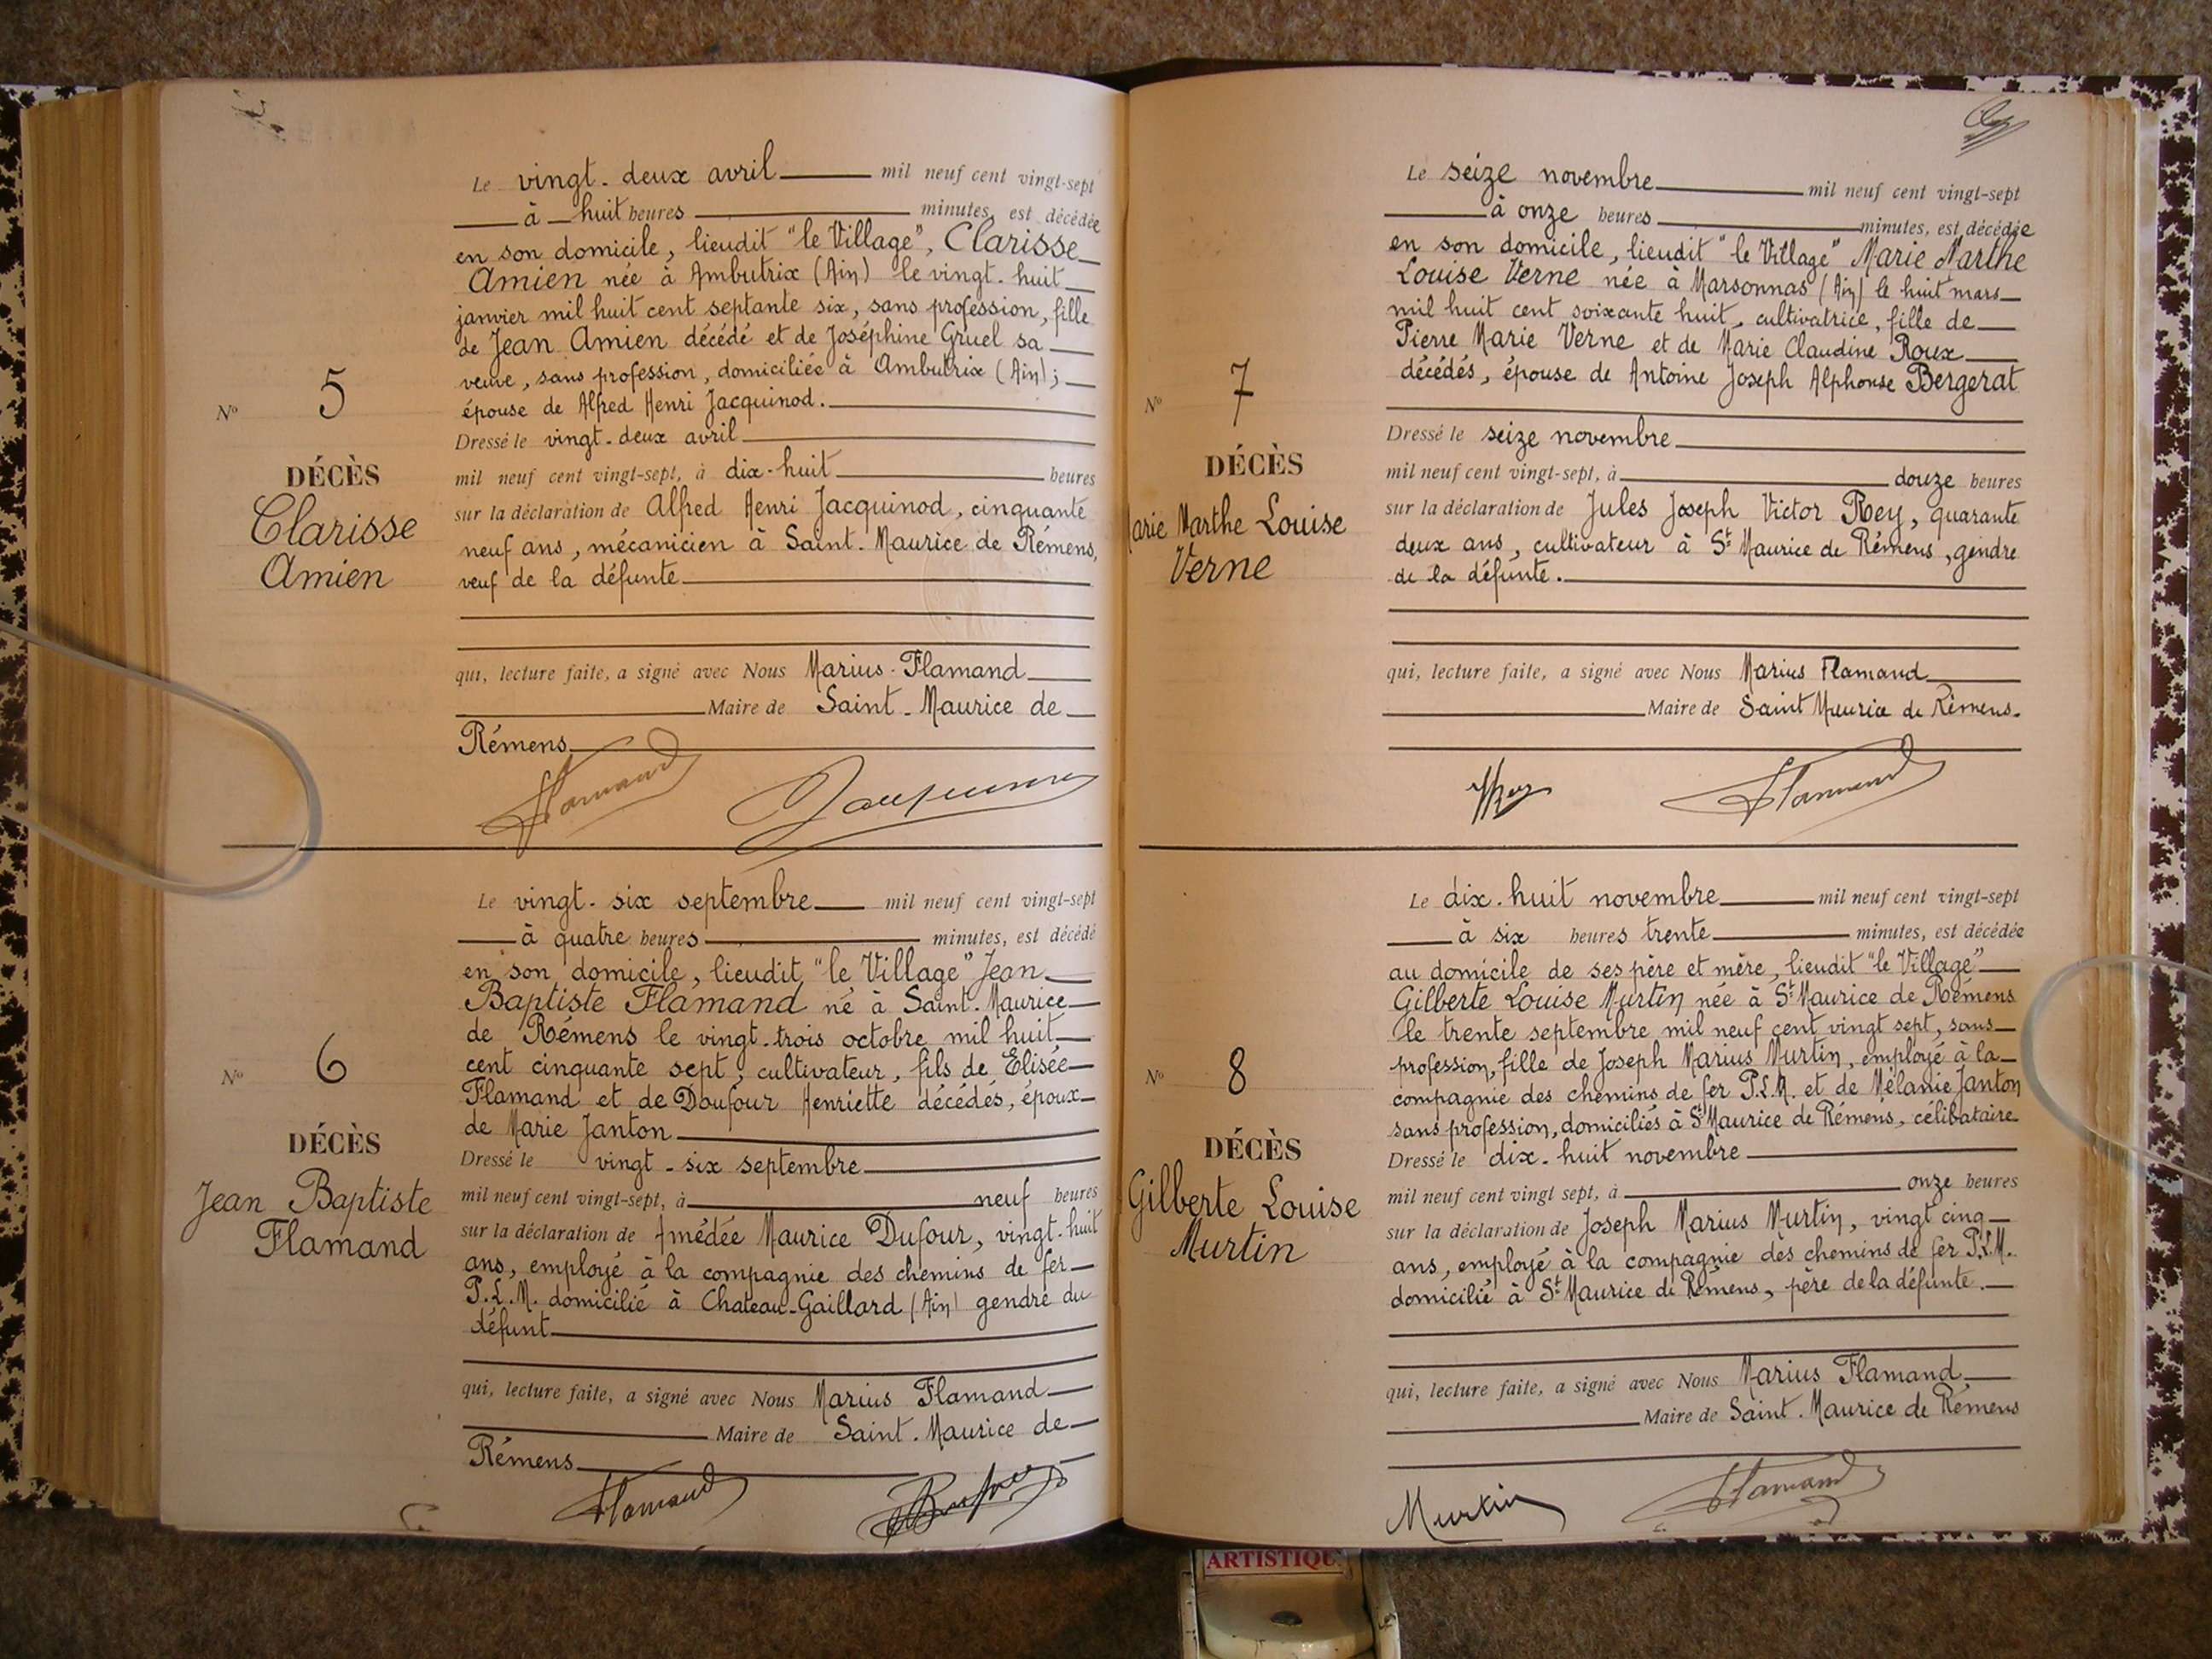 Le vingt-deux avril mil neuf cent vingt-sept
à huit heures minutes, est décédée
en son domicile, lieudit "le Village", Clarisse
Amien née à Ambutrix (Ain) le vingt-huit
janvier mil huit cent septante six, sans profession, fille
de Jean Amien décédé et de Joséphine Gruel sa
veuve, sans profession, domiciliée à Ambutrix (Ain);
épouse de Alfred Henri Jacquinod.
Dressé le vingt-deux avril
mil neuf cent vingt-sept, à dix-huit heures
sur la déclaration de Alfred Henri Jacquinod, cinquante
neuf ans, mécanicien à Saint-Maurice de Rémens,
veuf de la défunte
qui, lecture faite, a signé avec Nous Marius-Flamand
Maire de Saint-Maurice de
Rémens
Flamand
N° 5
DÉCÈS
Clarisse
Amien
Le vingt-six septembre mil neuf cent vingt-sept
à quatre heures minutes, est décédé
en son domicile, lieudit "le Village" Jean
Baptiste Flamand né à Saint-Maurice
de Rémens le vingt-trois octobre mil huit
cent cinquante sept, cultivateur, fils de Elisée
Flamand et de Doufour Henriette décédés, époux
de Marie Janton
Dressé le vingt-six septembre
mil neuf cent vingt-sept, à neuf heures
sur la déclaration de Amédée Maurice Dufour, vingt-huit
ans, employé à la compagnie des chemins de fer
P.L.M. domicilié à Chateau-Gaillard (Ain) gendre du
défunt
qui, lecture faite, a signé avec Nous Marius Flamand
Maire de Saint-Maurice de
Rémens
Flamand
N° 6
DÉCÈS
Jean Baptiste
Flamand
Le seize novembre mil neuf cent vingt-sept
à onze heures minutes, est décédée
en son domicile, lieudit "le Village" Marie Marthe
Louise Verne née à Marsonnas (Ain) le huit mars
mil huit cent soixante huit, cultivatrice, fille de
Pierre Marie Verne et de Marie Claudine Roux
décédés, épouse de Antoine Joseph Alphonse Bergerat
Dressé le seize novembre
mil neuf cent vingt-sept, à douze heures
sur la déclaration de Jules Joseph Victor Rey, quarante
deux ans, cultivateur à St Maurice de Rémens, gendre
de la défunte.
qui, lecture faite, a signé avec Nous Marius Flamand
Maire de Saint Maurice de Rémens.
Rey Flamand
N° 7
DÉCÈS
Marie Marthe Louise
Verne
Le dix-huit novembre mil neuf cent vingt-sept
à six heures trente minutes, est décédée
au domicile de ses père et mère, lieudit "le Village"
Gilberte Louise Murtin née à St Maurice de Rémens
le trente septembre mil neuf cent vingt sept, sans
profession, fille de Joseph Marius Murtin, employé à la
compagnie des chemins de fer P.L.M. et de Mélanie Janton
sans profession, domiciliés à St Maurice de Rémens, célibataire
Dressé le dix-huit novembre
mil neuf cent vingt sept, à onze heures
sur la déclaration de Joseph Marius Murtin, vingt cinq
ans, employé à la compagnie des chemins de fer P.L.M.
domicilié à St Maurice de Rémens, père de la défunte.
qui, lecture faite, a signé avec Nous Marius Flamand
Maire de Saint-Maurice de Rémens
Murtin Flamand
N° 8
DÉCÈS
Gilberte Louise
Murtin
ARTISTIQU